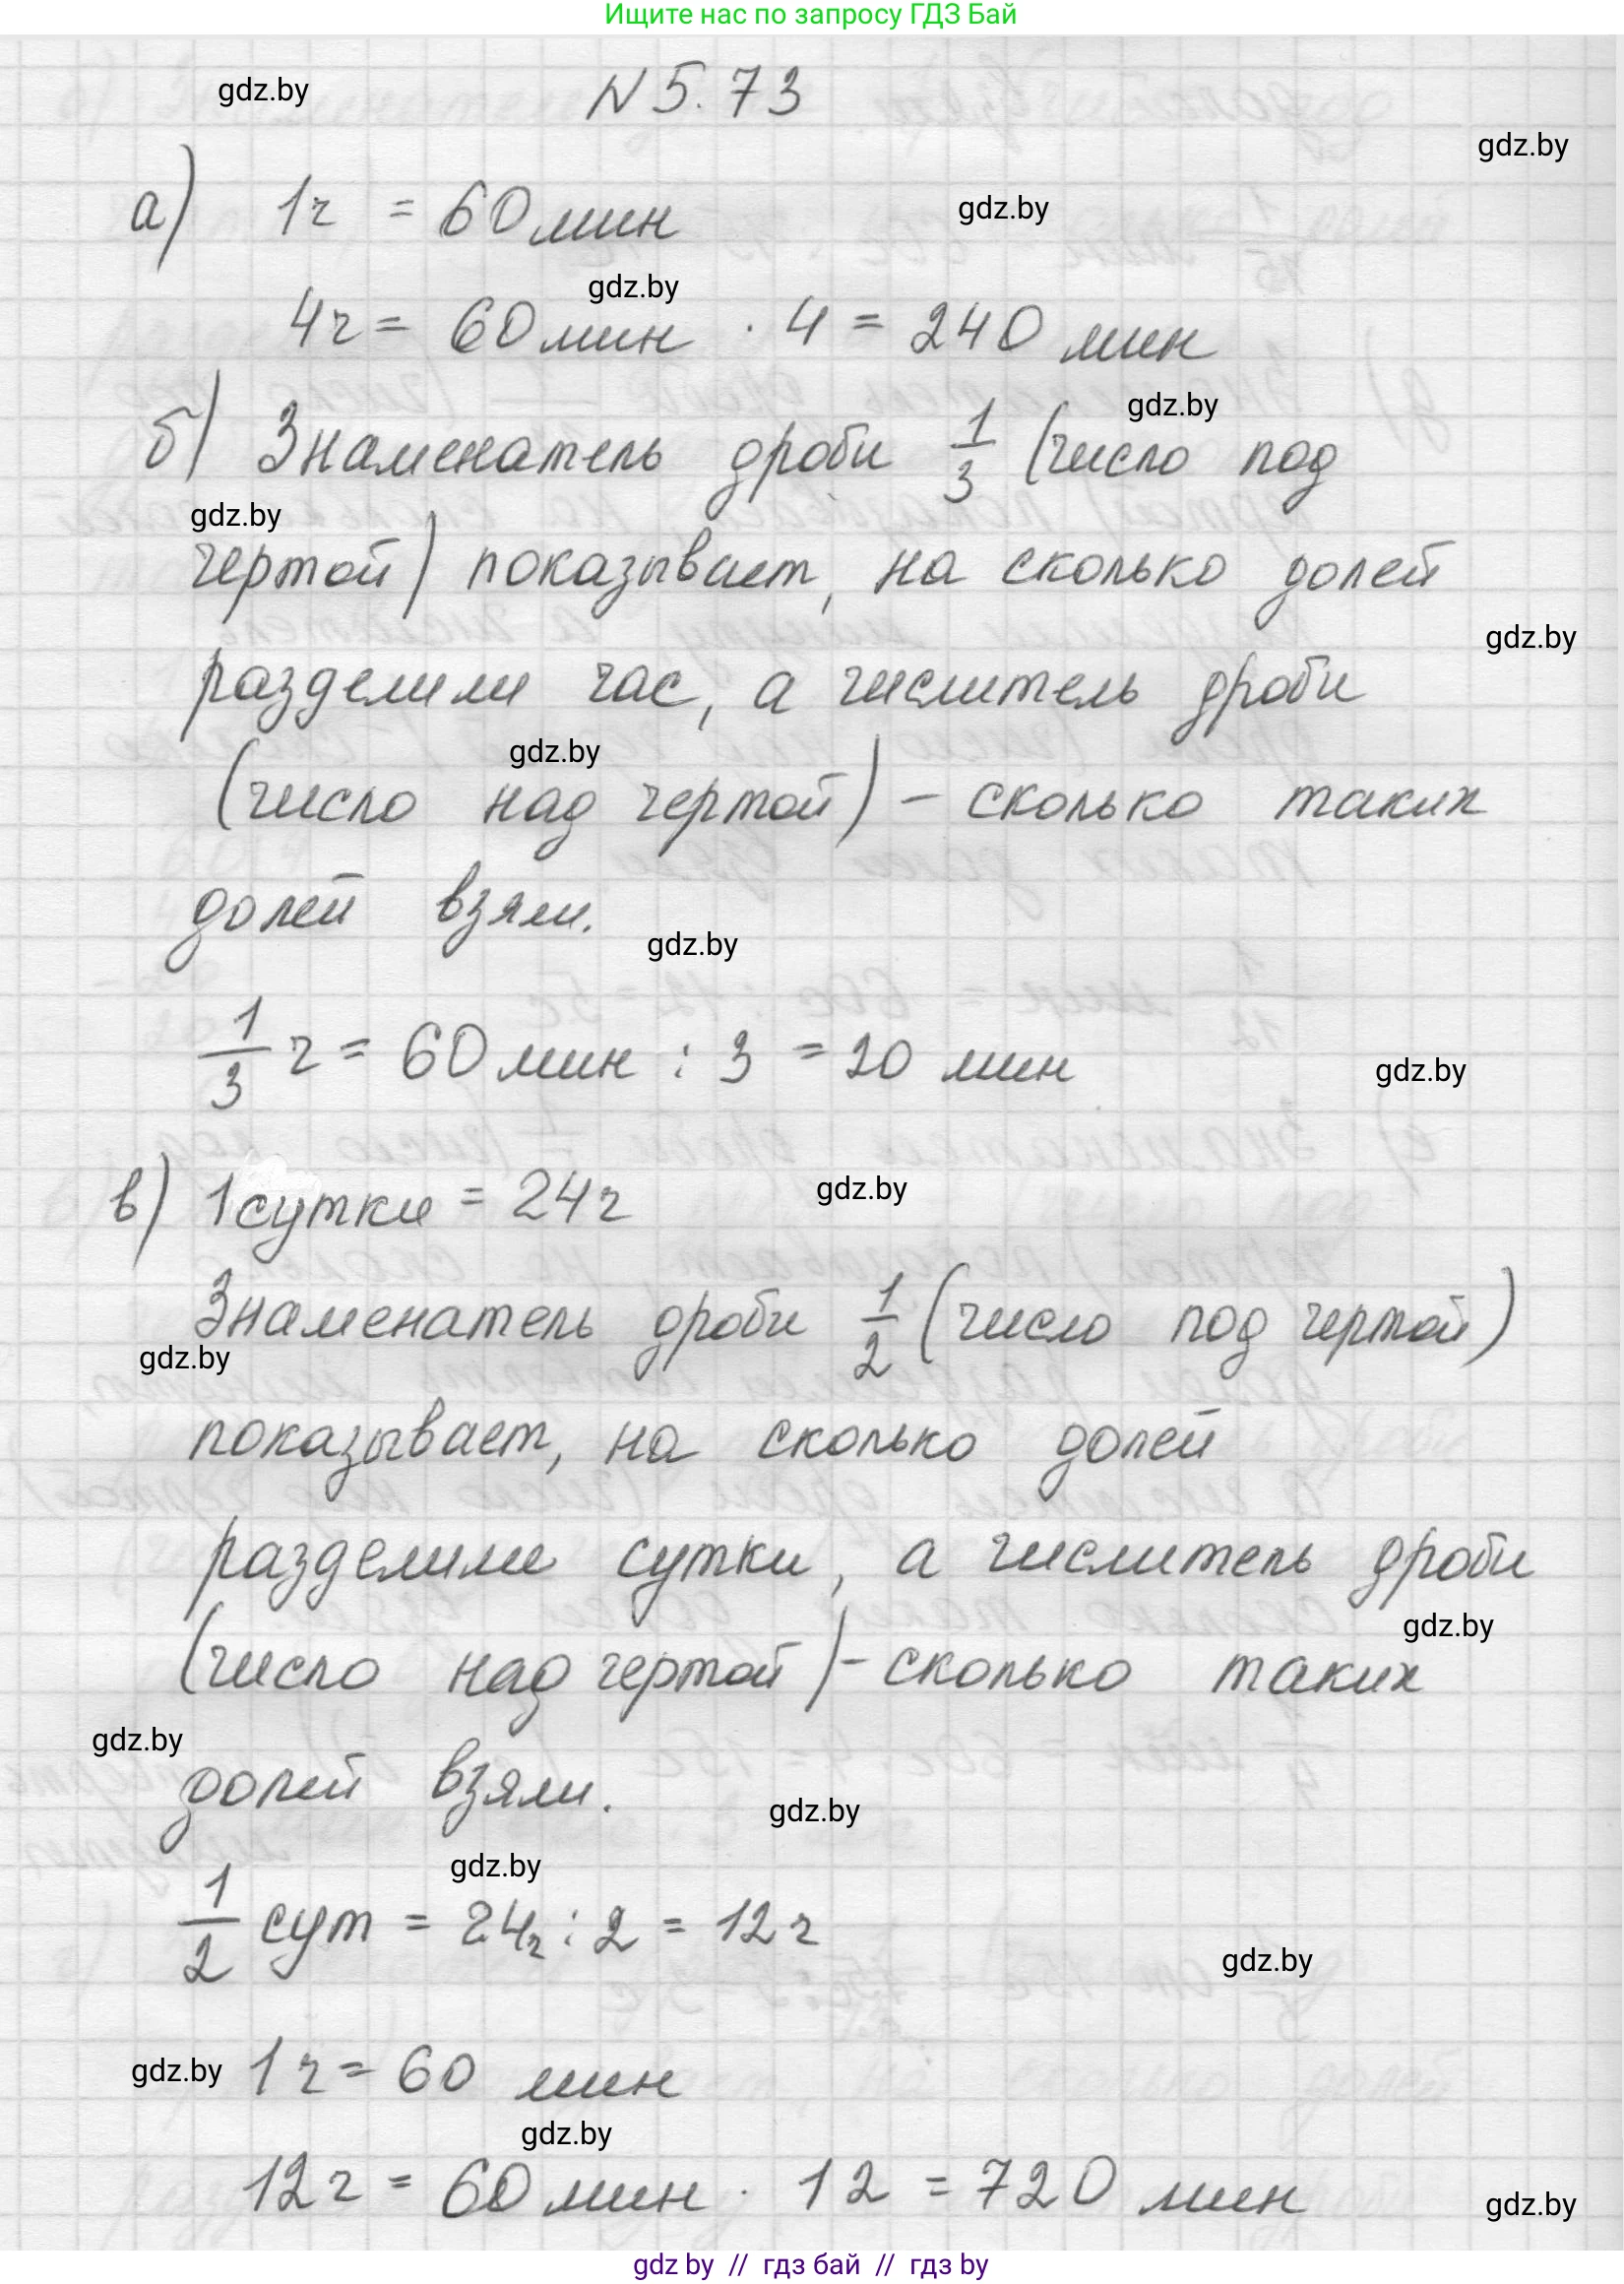 Ищите нас по запросу ГДЗ Бай
gdz.by
N 5.73
gdz.by
а) 1ч = 60 мин
gdz.by
gdz.by
4ч = 60 мин · 4 = 240 мин
gdz.by
б) Знаменатель дроби 1/3 (число под
gdz.by
чертой) показывает, на сколько долей
gdz.by
разделили час, а числитель дроби
gdz.by
(число над чертой) – сколько таких
долей взяли.
gdz.by
1/3 ч = 60 мин : 3 = 20 мин
gdz.by
в) 1 сутки = 24ч
gdz.by
Знаменатель дроби 1/2 (число под чертой)
gdz.by
показывает, на сколько долей
разделили сутки, а числитель дроби
gdz.by
(число над чертой) – сколько таких
gdz.by
долей взяли.
gdz.by
gdz.by
1/2 сут = 24ч : 2 = 12 ч
gdz.by
gdz.by
1 ч = 60 мин
gdz.by
12 ч = 60 мин · 12 = 720 мин
gdz.by
gdz by // гдз бай // гдз by